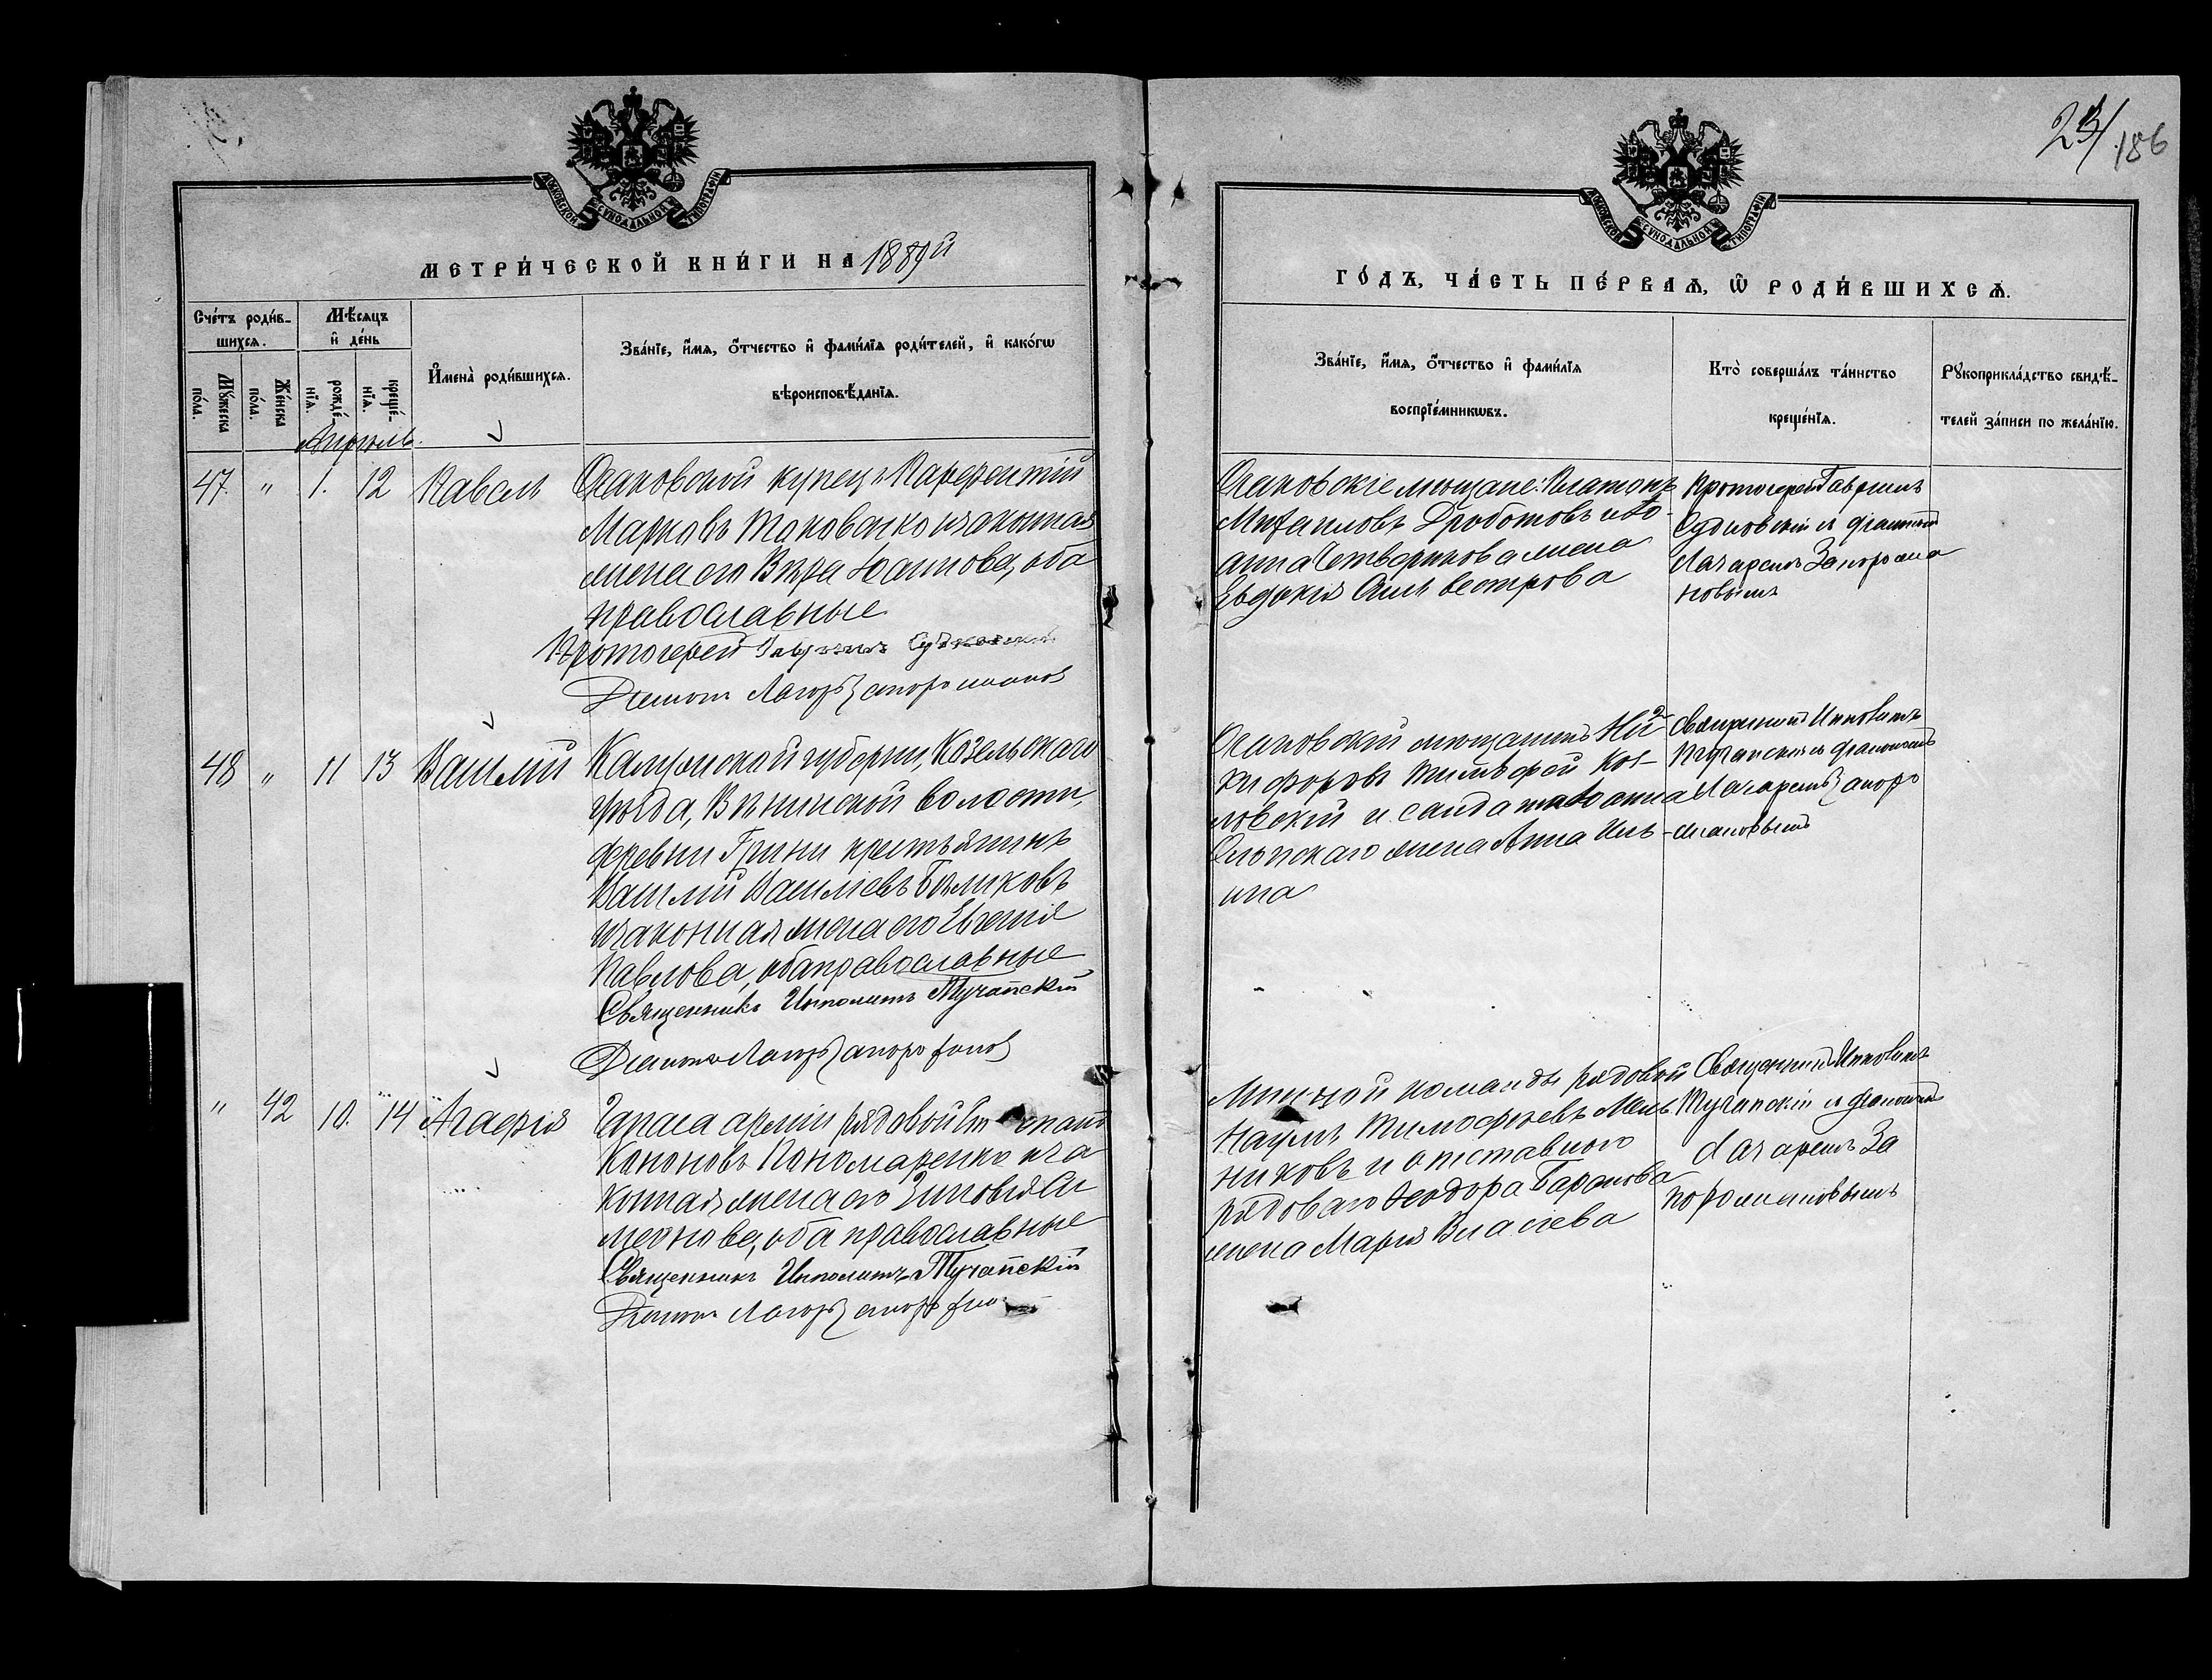 23/
186
МОСКОВСКОЙ СѴНОДАЛЬНОЙ ТИПОГРАФІИ
МОСКОВСКОЙ СѴНОДАЛЬНОЙ ТИПОГРАФІИ
МЕТРИ́ЧЕСКОЙ КНИ́ГИ НА 1889й
ГО́ДЪ, ЧА́СТЬ ПЕ́РВАѦ, Ѽ РОДИ́ВШИХСѦ.
Сче́тъ роди́в-
шихсѧ.
Мѣ́сѧцъ
и҆ де́нь
Мꙋ́жеска
по́ла.
Же́нска
по́ла.
рожде́
нїѧ.
креще́-
нїѧ.
И҆мена̀ роди́вшихсѧ.
Зва́нїе, и҆́мѧ, ѻ҆́тчество и҆ фами́лїѧ роди́телей, и҆ како́гѡ
вѣроисповѣ́данїѧ.
Зва́нїе, и҆́мѧ, ѻ҆́тчество и҆ фами́лїѧ
воспрїе́мникѡвъ.
Кто̀ соверша́лъ та́инство
креще́нїѧ.
Рꙋкоприкла́дство свидѣ́-
телей за́писи по жела́нїю.
Апрѣль.
47. " 1. 12 Павелъ
Очаковской купецъ Парѳентій
Марковъ Таковенко и законная
жена его Вѣра Іоаннова, оба
православные
Протоіерей Гавріилъ Судковскій
Діаконъ Лазарь Запорожановъ
Очаковскіе мѣщане: Платонъ
Михаиловъ Дроботовъ и Іо-
анна Четверикова жена
Евдокія Сильвестрова
Протоіерей Гавріилъ
Судковскій и діаконъ
Лазаремъ Запорожа
новымъ
48 " 11 13 Василій
Калужской губерніи, Козельскаго
уѣзда, Вѣнинской волости,
деревни Грини крестьянинъ
Василій Василіевъ Бѣликовъ
и законная жена его Евгенія
Павлова, оба православные
Священникъ Ипполитъ Тучапскій
Діаконъ Лазарь Запорожановъ
Очаковскій мѣщанинъ Ни-
кифоровъ Тимоѳей Коз-
ловскій и солдата Іоанна
жена Анна Иль-
ина
Священникъ Ипполитъ
Тучапскій и діакономъ
Лазаремъ Запоро
жановымъ
" 42 10. 14 Агафія
Запаса арміи рядовой
Кононовъ Пономаренко и за
конная жена его Зиновія Си
меонова, оба православные
Священникъ Ипполитъ Тучапскій
Діаконъ Лазарь
Минной команды рядовой
Наумъ Тимофѣевъ Мель
никовъ и отставного
рядоваго Ѳеодора Баранова
жена Марія Власіева
Священникъ Ипполитъ
Тучапскій и діакономъ
Лазаремъ За
порожановымъ